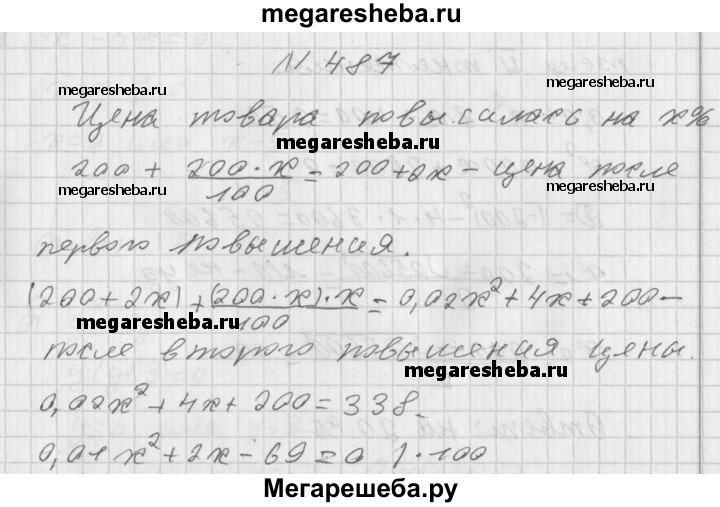 megaresheba.ru
N 487
megaresheba.ru megaresheba.ru
Цена товара повысилась на x%
megaresheba.ru
200 + 200·x/100 = 200+2x – цена после
megaresheba.ru megaresheba.ru
первого повышения.
(200+2x)+(200·x)·x/100 = 0,02x²+4x+200–
megaresheba.ru
после второго повышения цены.
megaresheba.ru
0,02x²+4x+200=338
0,01x²+2x-69=0 |·100
Мегарешеба.ру